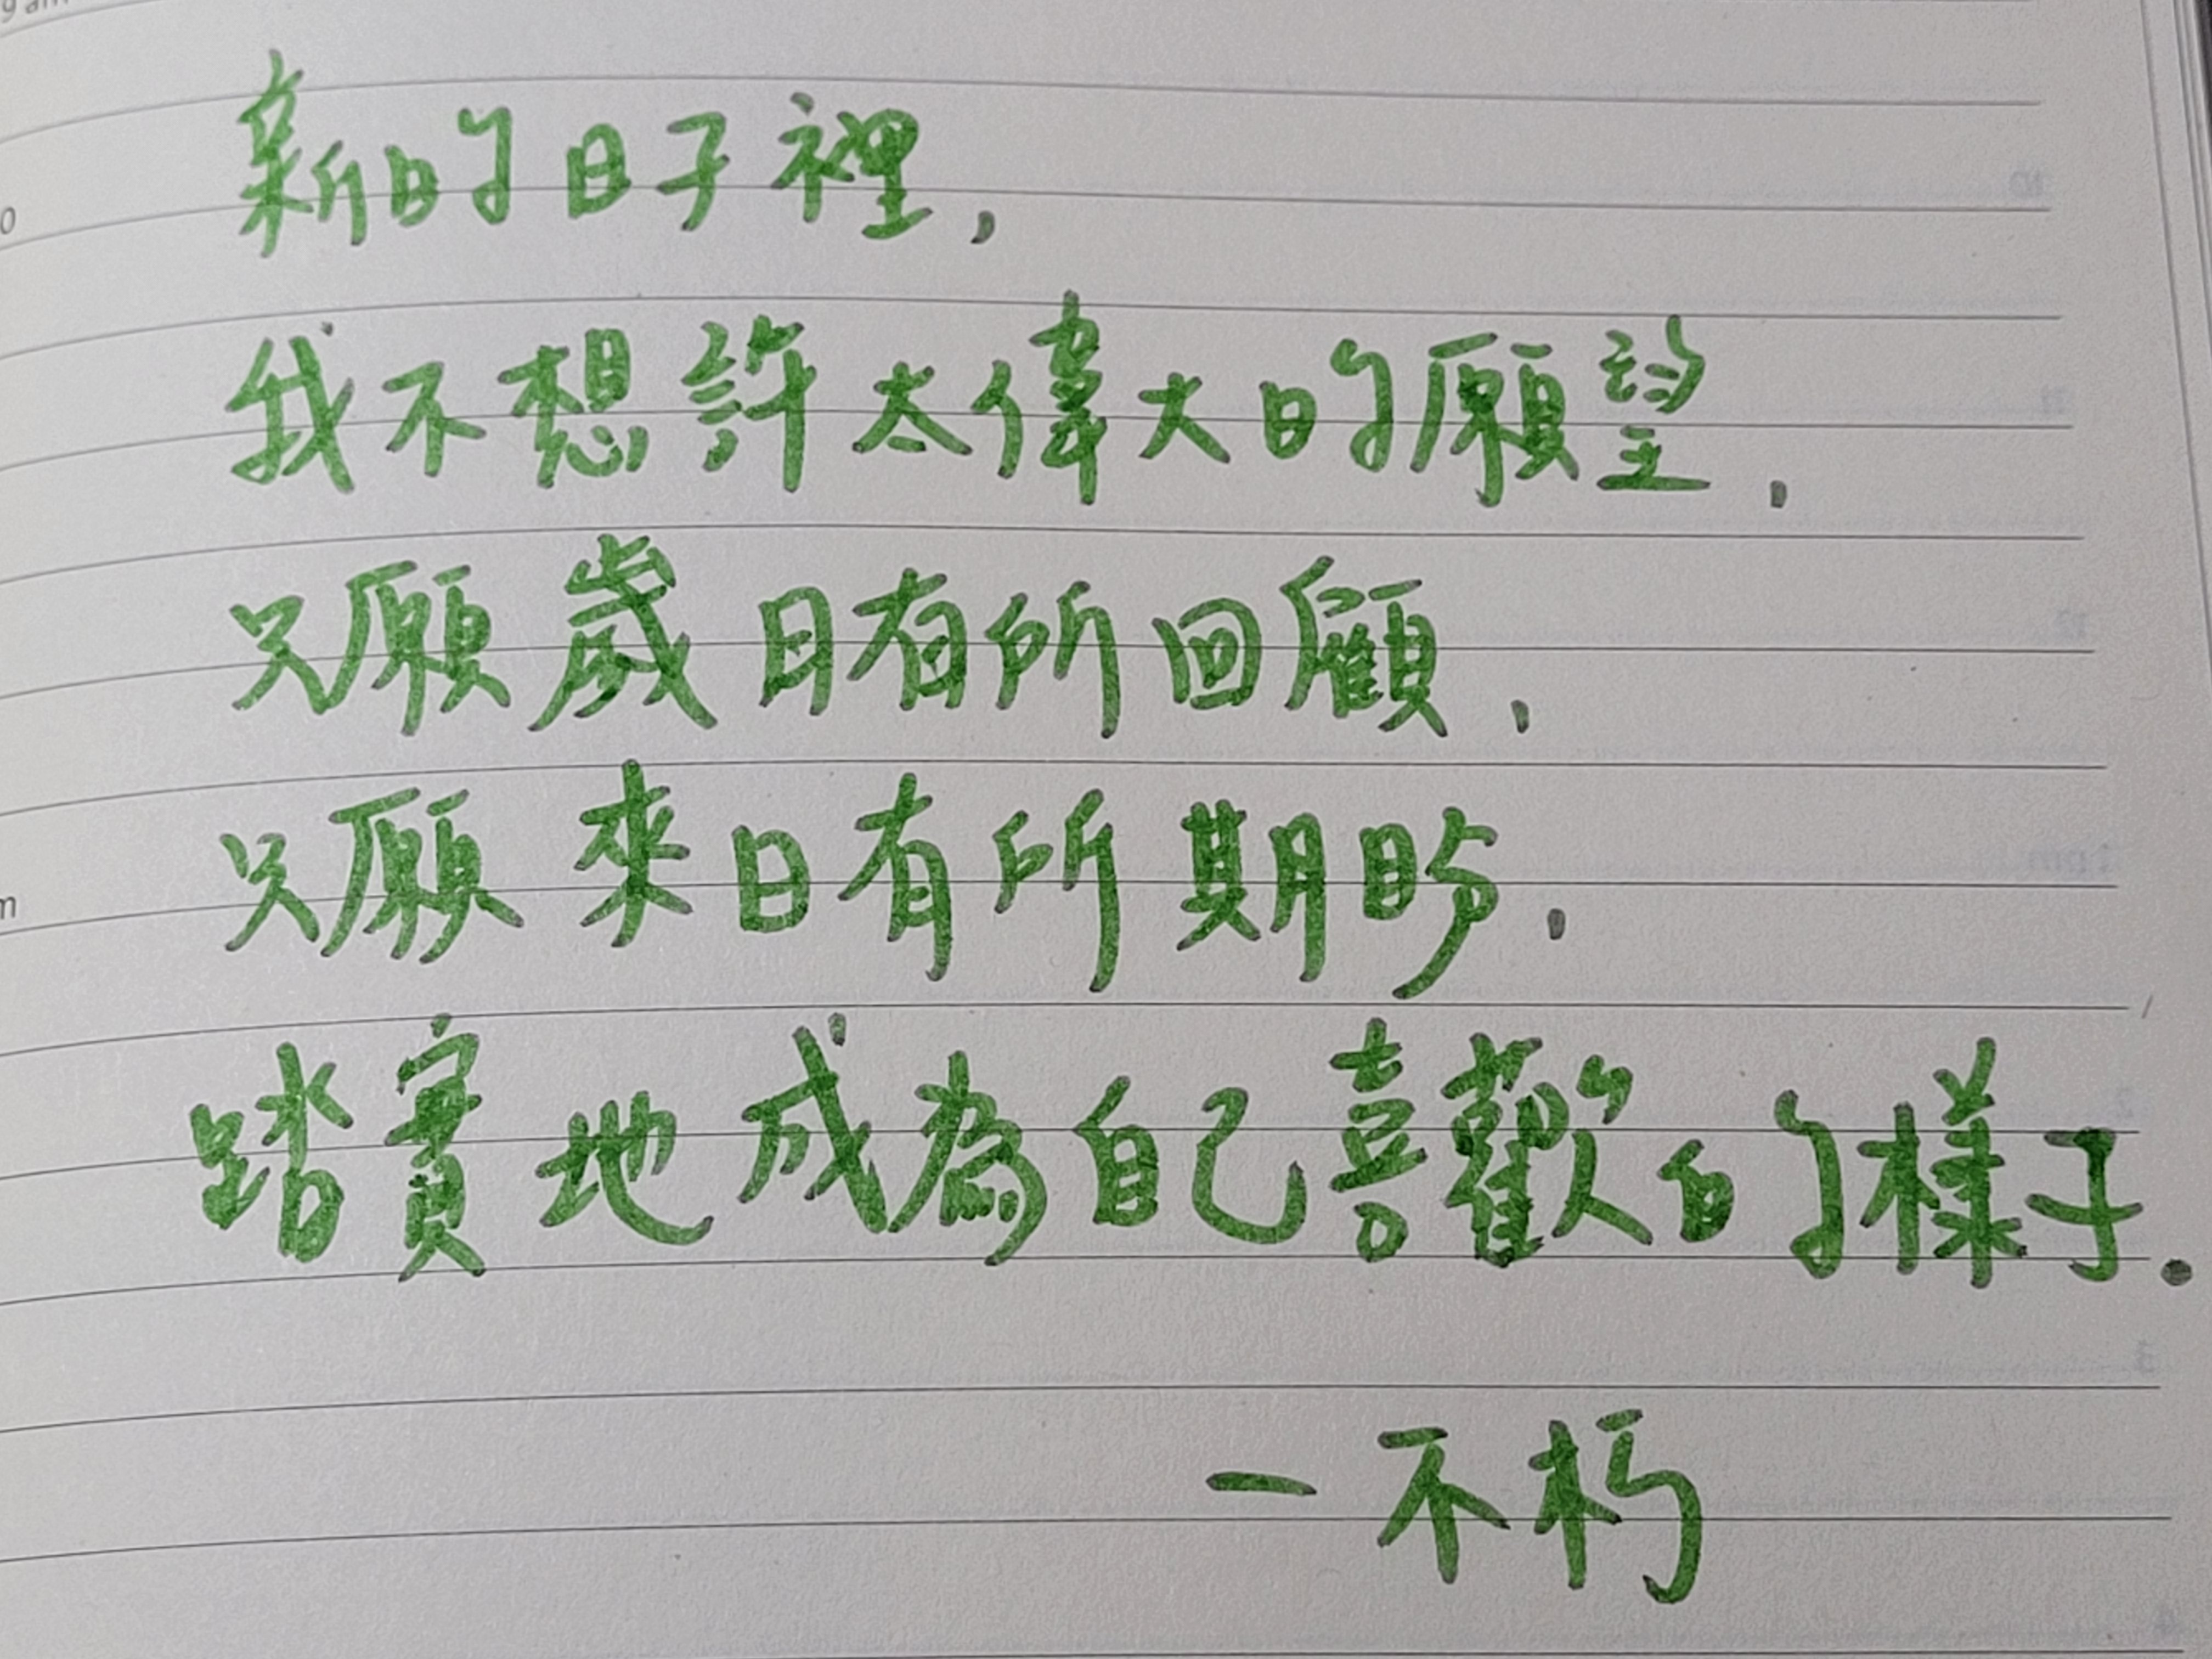 9 am
新的日子裡,
0
我不想許太偉大的願望,
只願歲日有所回顧,
只願來日有所期盼,
m
踏實地成為自己喜歡的樣子.
—不朽